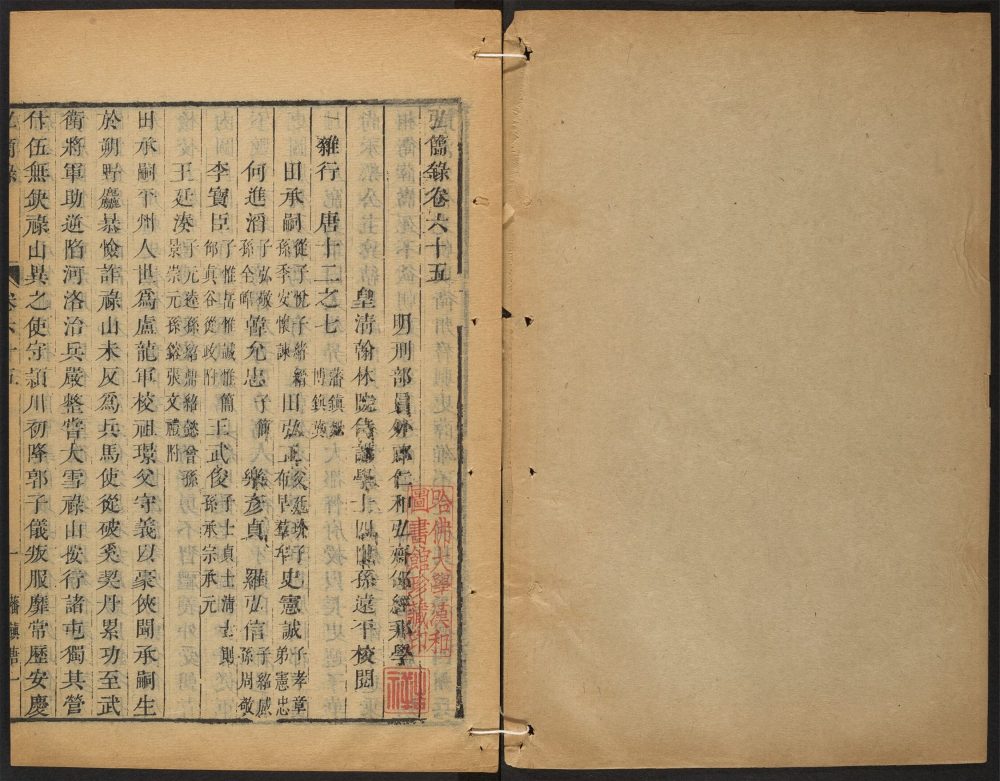 弘簡錄卷六十五
明刑部員外郎仁和弘齋邵經邦學
皇清翰林院侍讀學士四世孫遠平校閱
雜行 唐十二之七 藩鎮 博鎮冀
田承嗣 從子悅 子緒 緒子季安 懷諫 田弘正 子布 羣 牟 史憲誠 子孝章 弟憲忠
何進滔 子弘敬 孫全皥 韓允忠 子簡 樂彥貞 羅弘信 子紹威 孫周敬
李寶臣 子惟岳 惟誠 惟簡 王武俊 子士貞 士清 士則 孫承宗 承元
王廷湊 子元逵 孫紹鼎 紹懿 曾孫景崇 元孫鎔 張文禮附
田承嗣平州人世爲盧龍軍校祖璟父守義以豪俠聞承嗣生
於朔野麤暴險詐祿山未反爲兵馬使從破奚契丹累功至武
衛將軍助逆陷河洛治兵嚴整嘗大雪祿山按行諸屯獨其營
什伍無缺祿山異之使守潁川初降郭子儀叛服靡常歷安慶
哈佛大學漢和
圖書館珍藏印